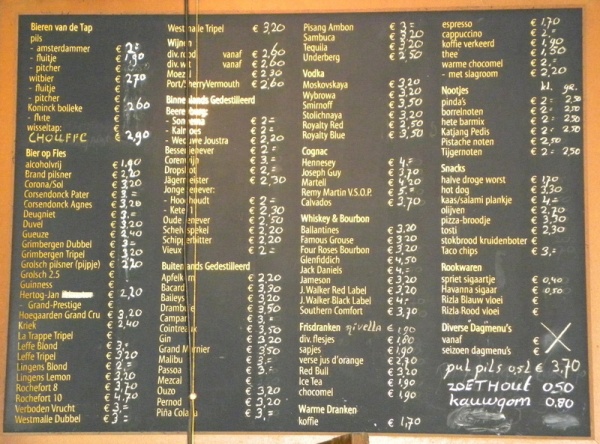 Bieren van de Tap
pils
- amsterdammer € 2=
- fluitje € 1,90
- pitcher €
witbier € 2,70
- fluitje €
- pitcher €
Koninck bolleke € 2,60
- fluitje €
wisseltap: €
CHOUFFE € 2,90
Bier op Fles
alcoholvrij € 1,90
Brand pilsner € 2,20
Corona/Sol € 3,20
Corsendonck Pater € 3=
Corsendonck Agnes € 3,20
Deugniet € 3,=
Duvel € 3,20
Gueuze € 2,40
Grimbergen Dubbel € 3=
Grimbergen Tripel € 3,20
Grolsch pilsner (pijpje) € 2,20
Grolsch 2.5 €
Guinness €
Hertog-Jan € 2,20
- Grand-Prestige
Hoegaarden Grand Cru € 3,20
Kriek € 2,40
La Trappe Tripel €
Leffe Blond € 3=
Leffe Tripel € 3,20
Lingens Blond € 2,=
Lingens Lemon € 3,20
Rochefort 8 € 3,70
Rochefort 10 € 4,70
Verboden Vrucht € 3,=
Westmalle Dubbel € 3=
Westmalle Tripel € 3,20
Wijnen
div. rood vanaf € 2,60
div. wit vanaf € 2,60
Moezel € 2,30
Port/Sherry/Vermouth € 2,60
Binnenlands Gedestilleerd
Beerenburg:
- Sonnema € 2=
- Kalmoes € 2=
- Weduwe Joustra € 2,20
Bessenjenever € 2=
Corenwijn € 3=
Dropshot € 2=
Jägermeister € 2,30
Jonge jenever:
- Hooghoudt € 2=
- Ketel 1 € 2,30
Oude jenever € 2,30
Schelvispekel € 2,20
Schipperbitter € 2,20
Vieux € 2=
Buitenlands Gedestilleerd
Apfelkorn € 2,20
Bacardi € 3,30
Baileys € 3,20
Drambuie € 3,50
Campari € 3=
Cointreau € 3,50
Gin € 3,20
Grand Marnier € 3,50
Malibu € 3=
Passoa € 3=
Mezcal €
Ouzo € 3,20
Pernod € 3,20
Piña Colada € 3,=
Pisang Ambon € 3=
Sambuca € 3,20
Tequila € 3,20
Underberg € 2,50
Vodka
Moskovskaya € 3,20
Wybrowa € 3,20
Smirnoff € 3,50
Stolichnaya € 3,20
Royalty Red € 2,50
Royalty Blue € 3,50
Cognac
Hennesey € 4,=
Joseph Guy € 3,70
Martell € 4,20
Remy Martin V.S.O.P. € 5=
Calvados € 3,70
Whiskey & Bourbon
Balantines € 3,20
Famous Grouse € 3,20
Four Roses Bourbon € 3,20
Glenfiddich € 4,50
Jack Daniels € 4,=
Jameson € 3,20
J. Walker Red Label € 3,20
J. Walker Black Label € 4,=
Southern Comfort € 3,70
Frisdranken rivella € 1,90
div. flesjes € 1,80
sapjes € 1,90
verse jus d'orange € 2,70
Red Bull € 3,20
Ice Tea € 1,90
chocomel € 1,90
Warme Dranken
koffie € 1,70
espresso € 1,70
cappuccino € 2=
koffie verkeerd € 1,90
thee € 1,50
warme chocomel € 2=
- met slagroom € 2,20
Nootjes kl. gr.
pinda's € 2= 2,50
borrelnoten € 2= 2,50
hete barmix € 2= 2,50
Katjang Pedis € 2= 2,50
Pistache noten € 2,50
Tijgernoten € 2= 2,50
Snacks
halve droge worst € 1,70
hot dog € 3,30
kaas/salami plankje € 4=
olijven € 2,70
pizza-broodje € 3,30
tosti € 2,30
stokbrood kruidenboter €
Taco chips € 3,=
Rookwaren
spriet sigaartje € 0,40
Havanna sigaar € 0,50
Rizla Blauw vloei €
Rizla Rood vloei €
Diverse Dagmenu's
vanaf €
seizoen dagmenu's €
pul pils 0,5l € 3,70
ZOETHOUT 0,50
kauwgom 0,80